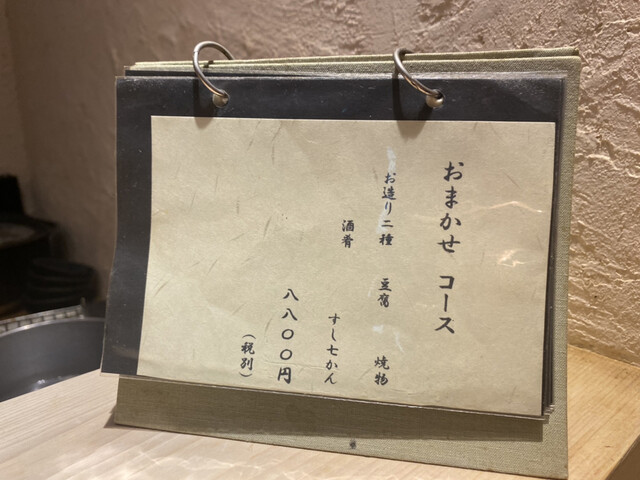 おまかせ コース
お造り二種 豆腐 焼物
酒肴 すし七かん
八八〇〇円
(税別)